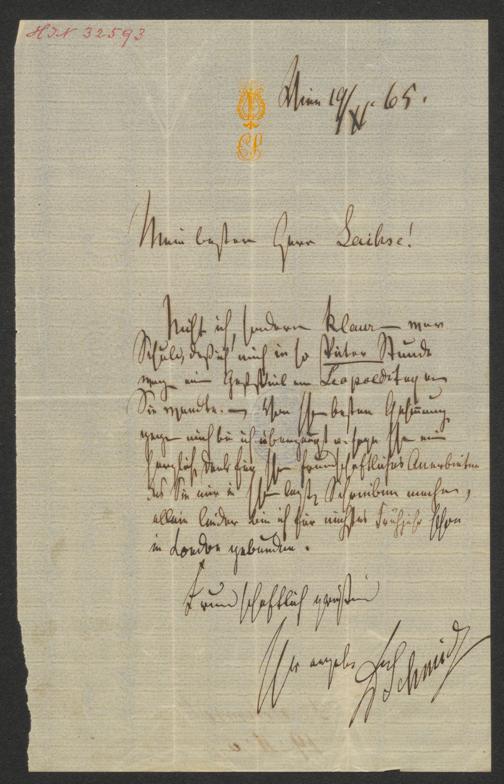 H.I.N 32593
Wien 19/XI. 65.
Mein bester Herr Laibse!
Nicht ich, sondern Klaur — war
Schuld, daß ich mich in so später Stunde
wegen ein am Leopolditag an
Sie wandte. — Von Ihrer besten Gesinnung
gegen mich bin ich überzeugt u. sage Ihnen ein
herzlichen Dank für Ihr freundschaftliches Anerbieten
das Sie mir in Ihrem letzten Schreiben machen,
allein leider bin ich für nächstes Frühjahr schon
in London gebunden.
Freundschaftlich grüßend
Ihr ergeb. Schmidt